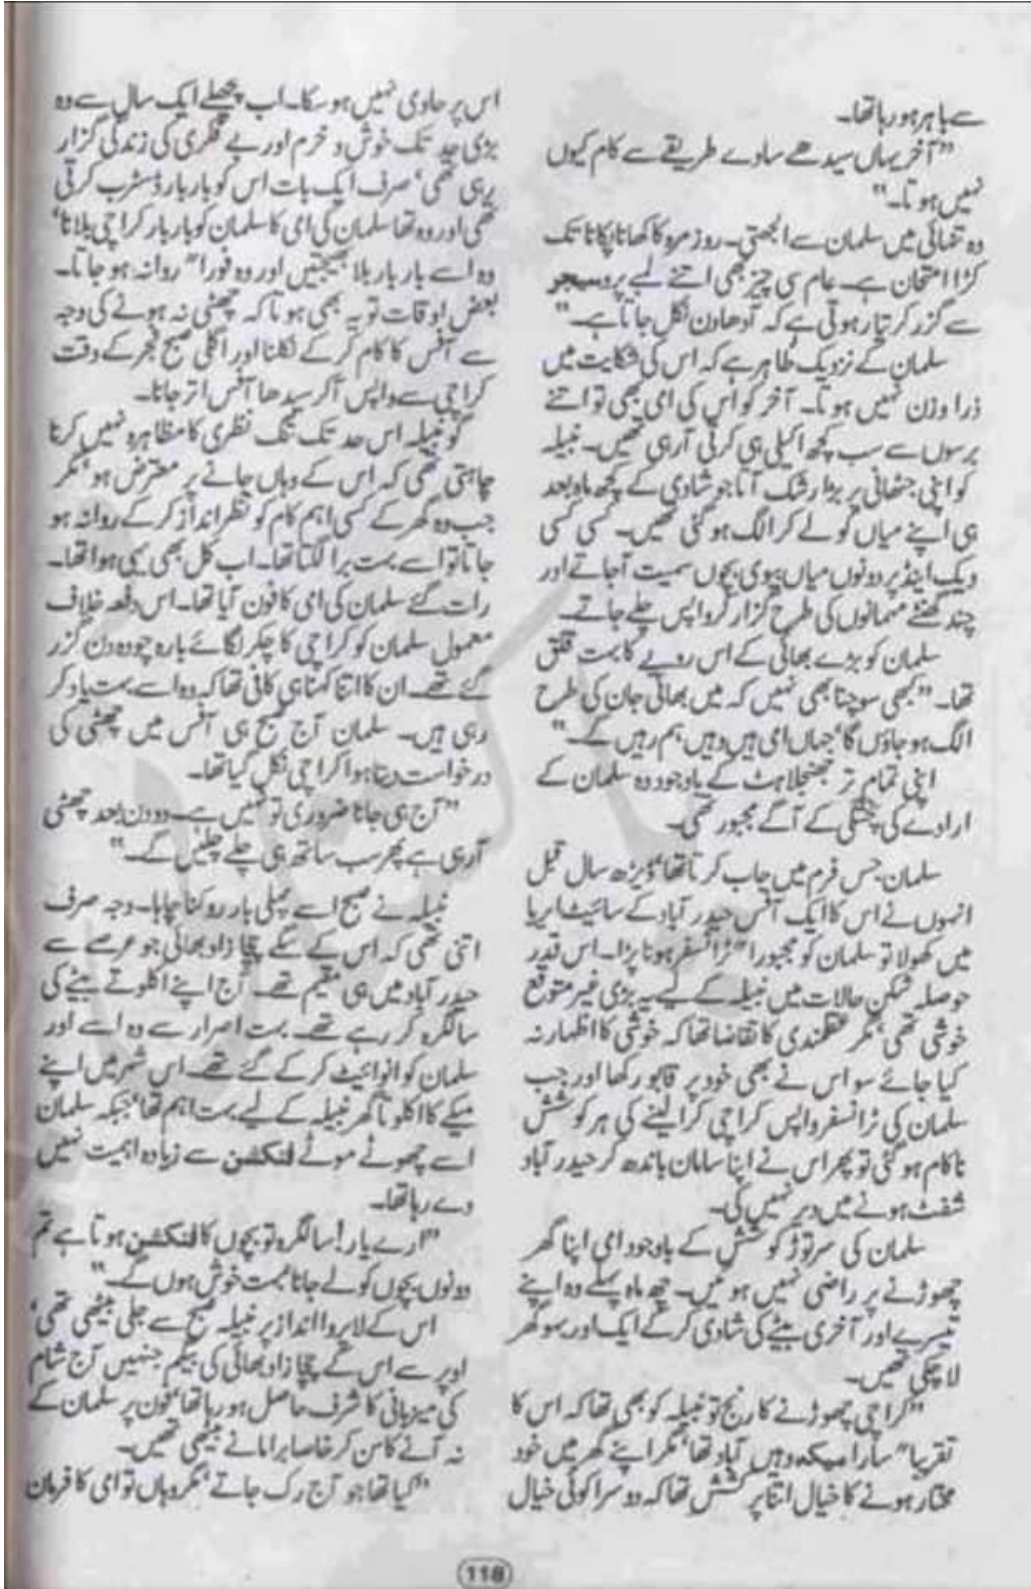 سے باہر ہو رہا تھا۔
”آخر یہاں سیدھے سادے طریقے سے کام کیوں
نہیں ہوتا۔“
وہ تنہائی میں سلمان سے الجھتی۔ روز مرہ کا کھانا پکانا تک
کڑا امتحان ہے۔ عام سی چیز بھی اتنے لمبے پروسیجر
سے گزر کر تیار ہوتی ہے کہ آدھا دن نکل جاتا ہے۔“
سلمان کے نزدیک ظاہر ہے کہ اس کی شکایت میں
ذرا وزن نہیں ہوتا۔ آخر کو اس کی امی بھی تو اتنے
برسوں سے سب کچھ اکیلی ہی کرتی آ رہی تھیں۔ نبیلہ
کو اپنی جٹھانی پر بڑا رشک آتا جو شادی کے کچھ ماہ بعد
ہی اپنے میاں کو لے کر الگ ہو گئی تھیں۔ کسی کسی
ویک اینڈ پر دونوں میاں بیوی بچوں سمیت آجاتے اور
چند گھنٹے مہمانوں کی طرح گزار کر واپس چلے جاتے۔
سلمان کو بڑے بھائی کے اس رویے کا بہت قلق
تھا۔ ”کبھی سوچنا بھی نہیں کہ میں بھائی جان کی طرح
الگ ہو جاؤں گا‘ جہاں امی ہیں وہیں ہم رہیں گے۔“
اپنی تمام تر جھنجلاہٹ کے باوجود وہ سلمان کے
ارادے کی پختگی کے آگے مجبور تھی۔
سلمان جس فرم میں جاب کرتا تھا‘ ڈیڑھ سال قبل
انہوں نے اس کا ایک آفس حیدر آباد کے سائیٹ ایریا
میں کھولا تو سلمان کو مجبورا“ ٹرانسفر ہونا پڑا۔ اس قدر
حوصلہ شکن حالات میں نبیلہ کے لیے یہ بڑی غیر متوقع
خوشی تھی‘ مگر عقلمندی کا تقاضا تھا کہ خوشی کا اظہار نہ
کیا جائے سو اس نے بھی خود پر قابو رکھا اور جب
سلمان کی ٹرانسفر واپس کراچی کرا لینے کی ہر کوشش
ناکام ہو گئی تو پھر اس نے اپنا سامان باندھ کر حیدر آباد
شفٹ ہونے میں دیر نہیں کی۔
سلمان کی سر توڑ کوشش کے باوجود امی اپنا گھر
چھوڑنے پر راضی نہیں ہوئیں۔ چھ ماہ پہلے وہ اپنے
تیسرے اور آخری بیٹے کی شادی کر کے ایک اور بہو گھر
لا چکی تھیں۔
”کراچی چھوڑنے کا رنج تو نبیلہ کو بھی تھا کہ اس کا
تقریبا“ سارا میکہ وہیں آباد تھا‘ مگر اپنے گھر میں خود
مختار ہونے کا خیال اتنا پر کشش تھا کہ دوسرا کوئی خیال
اس پر حاوی نہیں ہو سکا۔ اب پچھلے ایک سال سے وہ
بڑی حد تک خوش و خرم اور بے فکری کی زندگی گزار
رہی تھی‘ صرف ایک بات اس کو بار بار ڈسٹرب کرتی
تھی اور وہ تھا سلمان کی امی کا سلمان کو بار بار کراچی بلانا‘
وہ اسے بار بار بلا بھیجتیں اور وہ فورا“ روانہ ہو جاتا۔
بعض اوقات تو یہ بھی ہوتا کہ چھٹی نہ ہونے کی وجہ
سے آفس کا کام کر کے نکلنا اور اگلی صبح فجر کے وقت
کراچی سے واپس آ کر سیدھا آفس اتر جاتا۔
گو نبیلہ اس حد تک تنگ نظری کا مظاہرہ نہیں کرنا
چاہتی تھی کہ اس کے وہاں جانے پر معترض ہو‘ مگر
جب وہ گھر کے کسی اہم کام کو نظر انداز کر کے روانہ ہو
جاتا تو اسے بہت برا لگتا تھا۔ اب کل بھی یہی ہوا تھا۔
رات گئے سلمان کی امی کا فون آیا تھا۔ اس دفعہ خلاف
معمول سلمان کو کراچی کا چکر لگائے بارہ چودہ دن گزر
گئے تھے۔ ان کا اتنا کہنا ہی کافی تھا کہ وہ اسے بہت یاد کر
رہی ہیں۔ سلمان آج صبح ہی آفس میں چھٹی کی
درخواست دیتا ہوا کراچی نکل گیا تھا۔
”آج ہی جانا ضروری تو نہیں ہے۔ دو دن بعد چھٹی
آ رہی ہے پھر سب ساتھ ہی چلے چلیں گے۔“
نبیلہ نے صبح اسے پہلی بار روکنا چاہا۔ وجہ صرف
اتنی تھی کہ اس کے سگے چچا زاد بھائی جو عرصے سے
حیدر آباد میں ہی مقیم تھے۔ آج اپنے اکلوتے بیٹے کی
سالگرہ کر رہے تھے۔ بہت اصرار سے وہ اسے اور
سلمان کو انوائیٹ کر کے گئے تھے۔ اس شہر میں اپنے
میکے کا اکلوتا گھر نبیلہ کے لیے بہت اہم تھا‘ جبکہ سلمان
اسے چھوٹے موٹے فنکشن سے زیادہ اہمیت نہیں
دے رہا تھا۔
”ارے یار! سالگرہ تو بچوں کا فنکشن ہوتا ہے تم
دونوں بچوں کو لے جانا بہت خوش ہوں گے۔“
اس کے لاپروا انداز پر نبیلہ صبح سے جلی بیٹھی تھی‘
اوپر سے اس کے چچا زاد بھائی کی بیگم جنہیں آج شام
کی میزبانی کا شرف حاصل ہو رہا تھا‘ فون پر سلمان کے
نہ آنے کا سن کر خاصا برا مانے بیٹھی تھیں۔
”کیا تھا جو آج رک جاتے‘ مگر وہاں تو امی کا فرمان
118